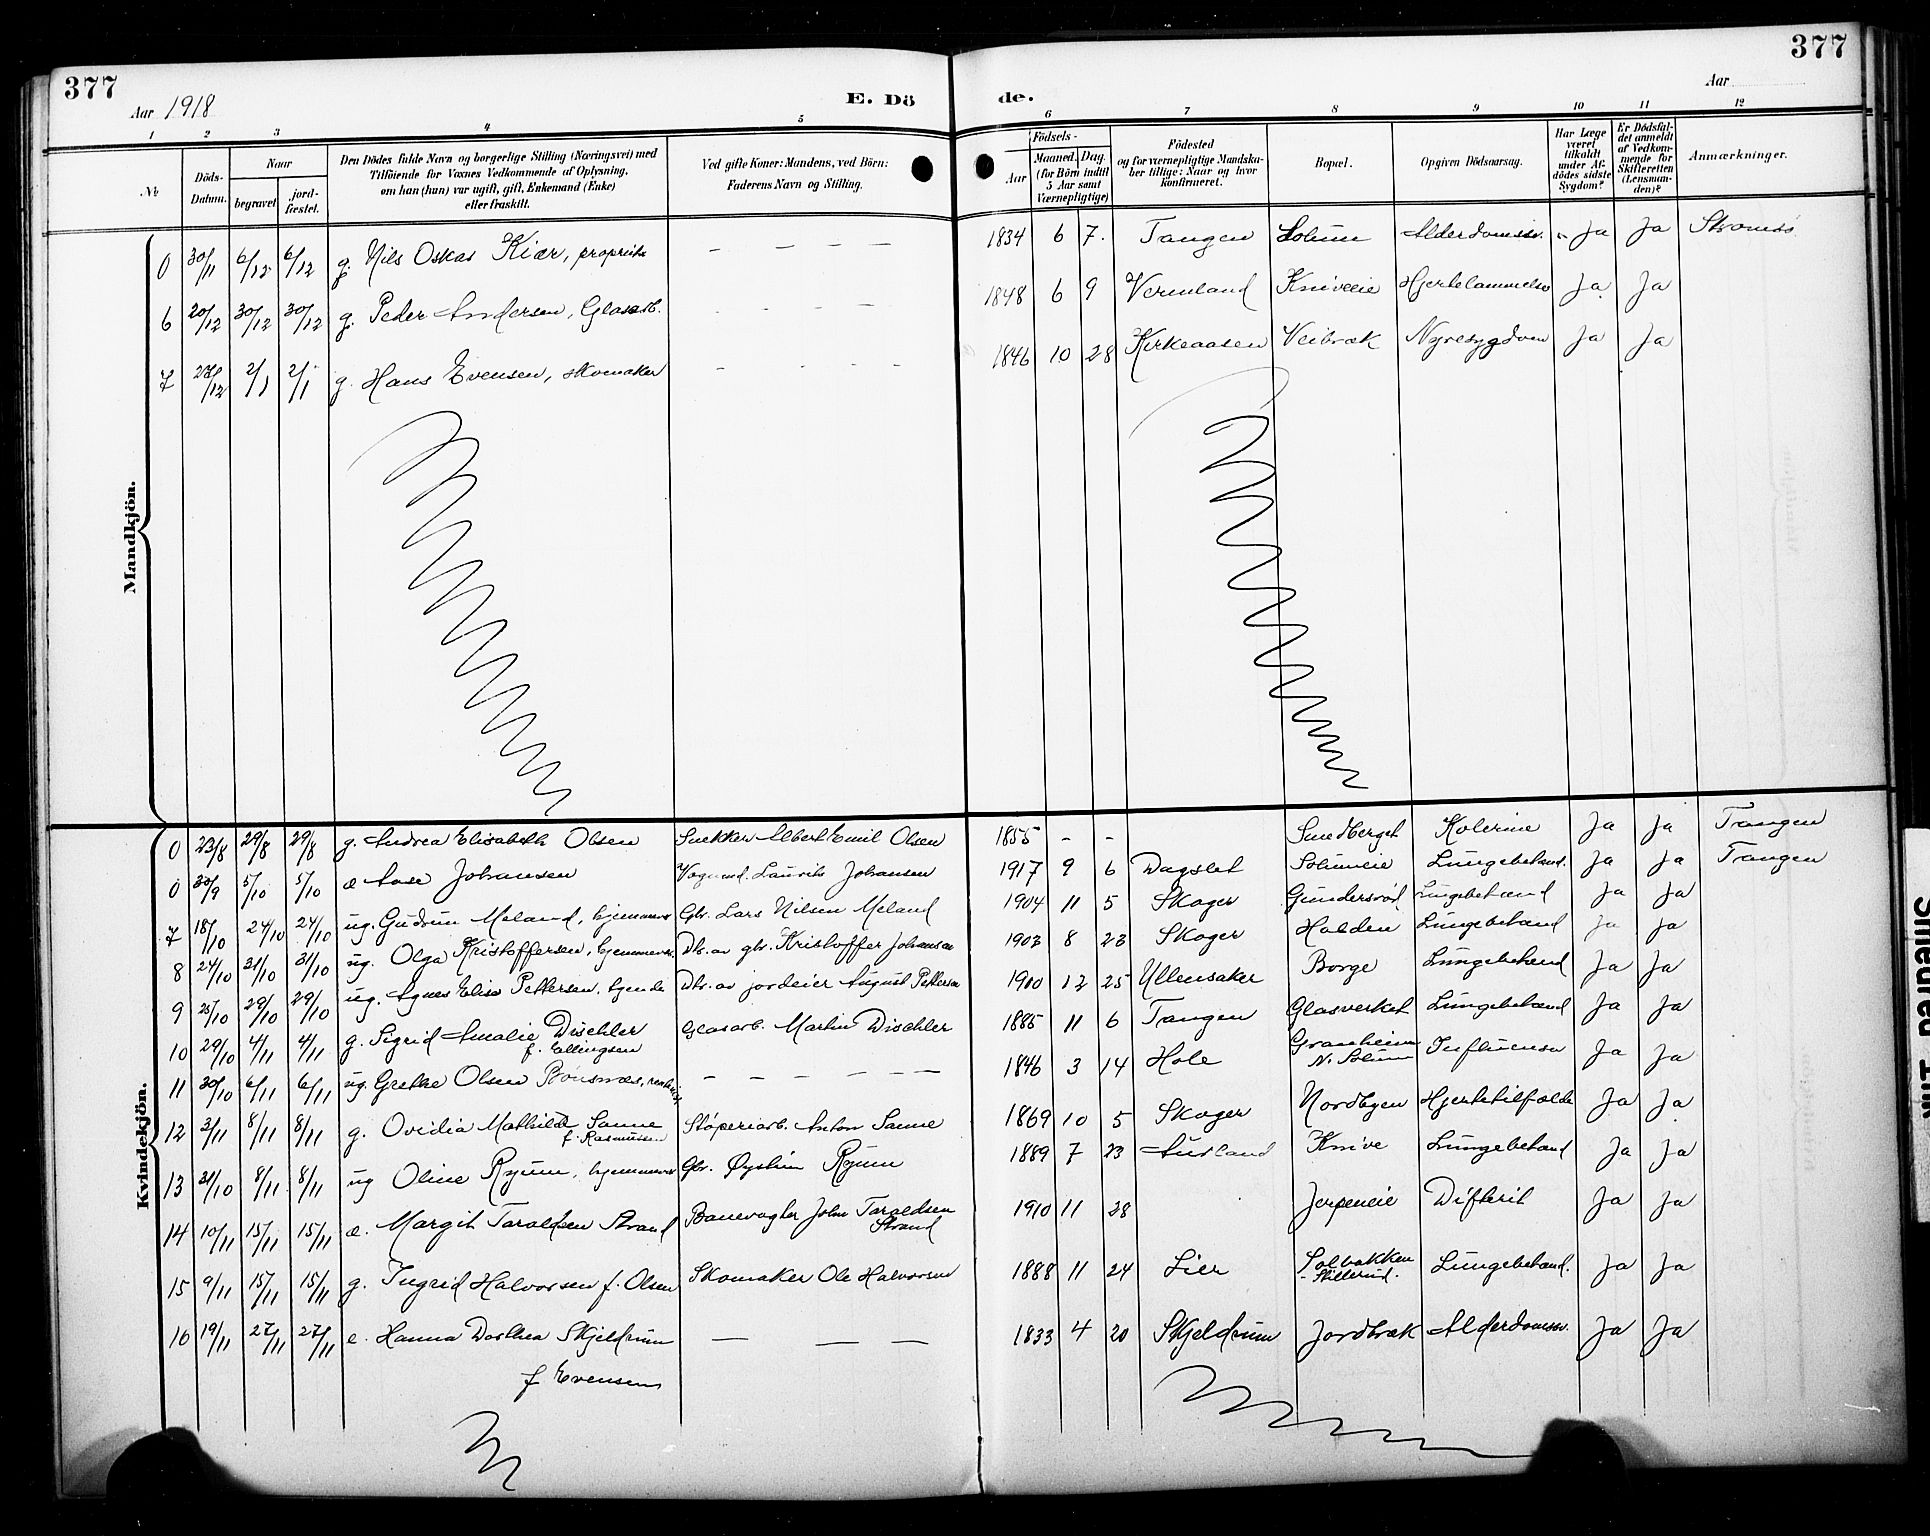 377
377
Aar 1918
E. Dö
de.
Aar
1 2 3 4 5 6 7 8 9 10 11 12
№
Döds-Datum.
Naar
begravet
jord-fæstet.
Den Dödes fulde Navn og borgerlige Stilling (Næringsvei) med
Tilföiende for Voxnes Vedkommende af Oplysning,
om han (hun) var ugift, gift, Enkemand (Enke)
eller fraskilt.
Ved gifte Koner: Mandens, ved Börn:
Faderens Navn og Stilling.
Födsels-
Aar
Maaned. Dag.
(for Börn indtil
5 Aar samt
Værnepligtige)
Födested
og for værnepligtige Mandska-
ber tillige: Naar og hvor
konfirmeret.
Bopæl.
Opgiven Dödsaarsag.
Har Læge
været
tilkaldt
under Af-
dödes sidste
Sygdom?
Er Dödsfal-
det anmeldt
af Vedkom-
mende for
Skifteretten
(Lensman-
den)?
Anmærkninger.
Mandkjön.
0 30/11 6/12 6/12 g. Nils Oskar Kiær, propriet. — — — — 1834 6 7. Tangen Solum Alderdomssv. Ja Ja Strømsø
6 20/12 30/12 30/12 g. Peder Andersen, Glasarb. - - - - 1848 6 9 Vermland Kniveeie Hjertelammelse Ja Ja
7 27/12 2/1 2/1 g. Hans Evensen, skomaker - - - - 1846 10 28 Kirkeaasen Veibræk Nyresygdom Ja Ja
Kvindekjön.
0 23/8 29/8 29/8 g. Andrea Elisabeth Olsen Snekker Albert Emil Olsen 1855 - - Smedberget Kolerine Ja Ja Tangen
0 30/9 5/10 5/10 æ Aase Johansen Vognmd. Laurits Johansen 1917 9 6 Dagslet Solumeie Lungebetænd. Ja Ja Tangen
7 18/10 24/10 24/10 ug. Gudrun Meland, hjemmevær. Gbr. Lars Nilsen Meland 1904 11 5 Skoger Gundersrød Lungebetænd Ja Ja
8 24/10 31/10 31/10 ug. Olga Kristoffersen, hjemmevær. Dtr. av gbr. Kristoffer Johansen 1902 8 23 Skoger Halden Lungebetænd Ja Ja
9 25/10 29/10 29/10 ug. Agnes Elise Pettersen, tjende Dtr. av jordeier August Pettersen 1900 12 25 Ullensaker Borge Lungebetænd Ja Ja
10 29/10 4/11 4/11 g. Sigrid Amalie Dischler Glasarb. Martin Dischler 1885 11 6 Tangen Glasverket Lungebetænd Ja Ja
f. Ellingsen
11 30/10 6/11 6/11 ug. Grethe Olsen Bönsnæs, — — — — — 1846 3 14 Hole Granheim Influensa Ja Ja
N. Solum
12 3/11 8/11 8/11 g. Ovidia Mathilde Sanne Støperiarb. Anton Sanne 1869 10 5 Skoger Nordbyen Hjertetilfælde Ja Ja
f. Rasmussen
13 31/10 8/11 8/11 ug Oline Ryum, hjemmevær Gbr. Øystein Ryum 1889 7 23 Aurland Knive Lungebetænd Ja Ja
14 10/11 15/11 15/11 æ. Margit Taraldsen Strand Banevogter John Taraldsen 1910 11 28 Jerpeneie Difterit Ja Ja
Strand
15 9/11 15/11 15/11 g. Ingrid Halvorsen f. Olsen Skomaker Ole Halvorsen 1888 11 24 Lier Solbakken Lungebetænd. Ja Ja
- Skillerud.
16 19/11 27/11 27/11 e. Hanna Dorthea Skjeldrum — — — 1833 4 20 Skjeldrum Jordbræk Alderdomssv. Ja Ja
f Evensen